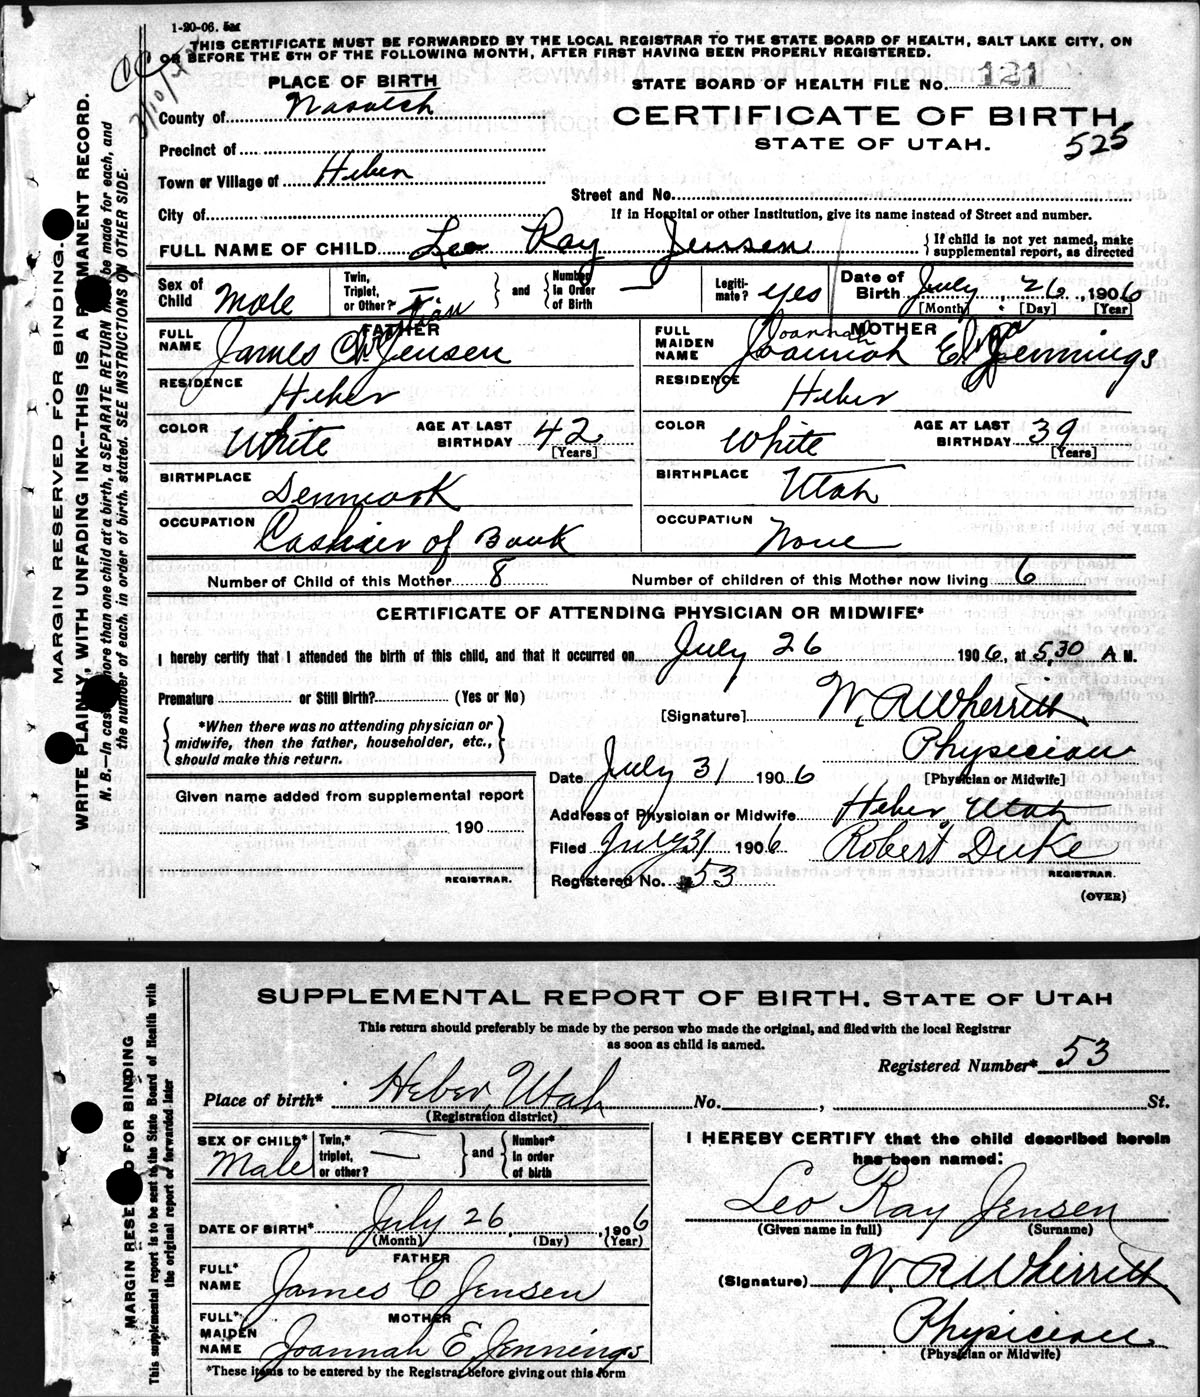 1-20-06. 5M
THIS CERTIFICATE MUST BE FORWARDED BY THE LOCAL REGISTRAR TO THE STATE BOARD OF HEALTH, SALT LAKE CITY, ON
OR BEFORE THE 5TH OF THE FOLLOWING MONTH, AFTER FIRST HAVING BEEN PROPERLY REGISTERED.
PLACE OF BIRTH
STATE BOARD OF HEALTH FILE NO. 121
County of Wasatch
CERTIFICATE OF BIRTH
STATE OF UTAH.
525
Precinct of
Town or Village of Heber
Street and No.
City of
If in Hospital or other Institution, give its name instead of Street and number.
FULL NAME OF CHILD Leo Ray Jensen { If child is not yet named, make supplemental report, as directed
Sex of Child Male
Twin, Triplet, or Other? — } and { Number In Order of Birth —
Legitimate? yes
Date of Birth July, 26, 1906
[Month] [Day] [Year]
FATHER
FULL NAME James Christian Jensen
RESIDENCE Heber
COLOR White AGE AT LAST BIRTHDAY 42
[Years]
BIRTHPLACE Denmark
OCCUPATION Cashier of Bank
MOTHER
Joannah
FULL MAIDEN NAME Joannah E Jennings
RESIDENCE Heber
COLOR White AGE AT LAST BIRTHDAY 39
[Years]
BIRTHPLACE Utah
OCCUPATION None
Number of Child of this Mother 8 Number of children of this Mother now living 6
CERTIFICATE OF ATTENDING PHYSICIAN OR MIDWIFE*
I hereby certify that I attended the birth of this child, and that it occurred on July 26 1906, at 5.30 A M.
Premature or Still Birth? (Yes or No)
[Signature] W. R Wherritt
{ *When there was no attending physician or midwife, then the father, householder, etc., should make this return. }
Physician
[Physician or Midwife]
Date July 31 1906
Address of Physician or Midwife Heber, Utah
Filed July 31 1906 Robert Duke
REGISTRAR.
Registered No. 53
(OVER)
Given name added from supplemental report
190
REGISTRAR.
MARGIN RESERVED FOR BINDING.
WRITE PLAINLY, WITH UNFADING INK--THIS IS A PERMANENT RECORD.
N. B.—In case more than one child at a birth, a SEPARATE RETURN must be made for each, and
the number of each, in order of birth, stated. SEE INSTRUCTIONS ON OTHER SIDE.
SUPPLEMENTAL REPORT OF BIRTH, STATE OF UTAH
This return should preferably be made by the person who made the original, and filed with the local Registrar
as soon as child is named.
Registered Number* 53
Place of birth* Heber, Utah No. , St.
(Registration district)
SEX OF CHILD* Male
Twin,* triplet, or other? — } and { Number* in order of birth
DATE OF BIRTH* July 26, 1906
(Month) (Day) (Year)
FATHER
FULL* NAME James C Jensen
MOTHER
FULL* MAIDEN NAME Joannah E Jennings
*These items to be entered by the Registrar before giving out this form
I HEREBY CERTIFY that the child described herein
has been named:
Leo Ray Jensen
(Given name in full) (Surname)
(Signature) W. R Wherritt
Physician
(Physician or Midwife)
MARGIN RESERVED FOR BINDING
This supplemental report is to be sent to the State Board of Health with
the original report or forwarded later